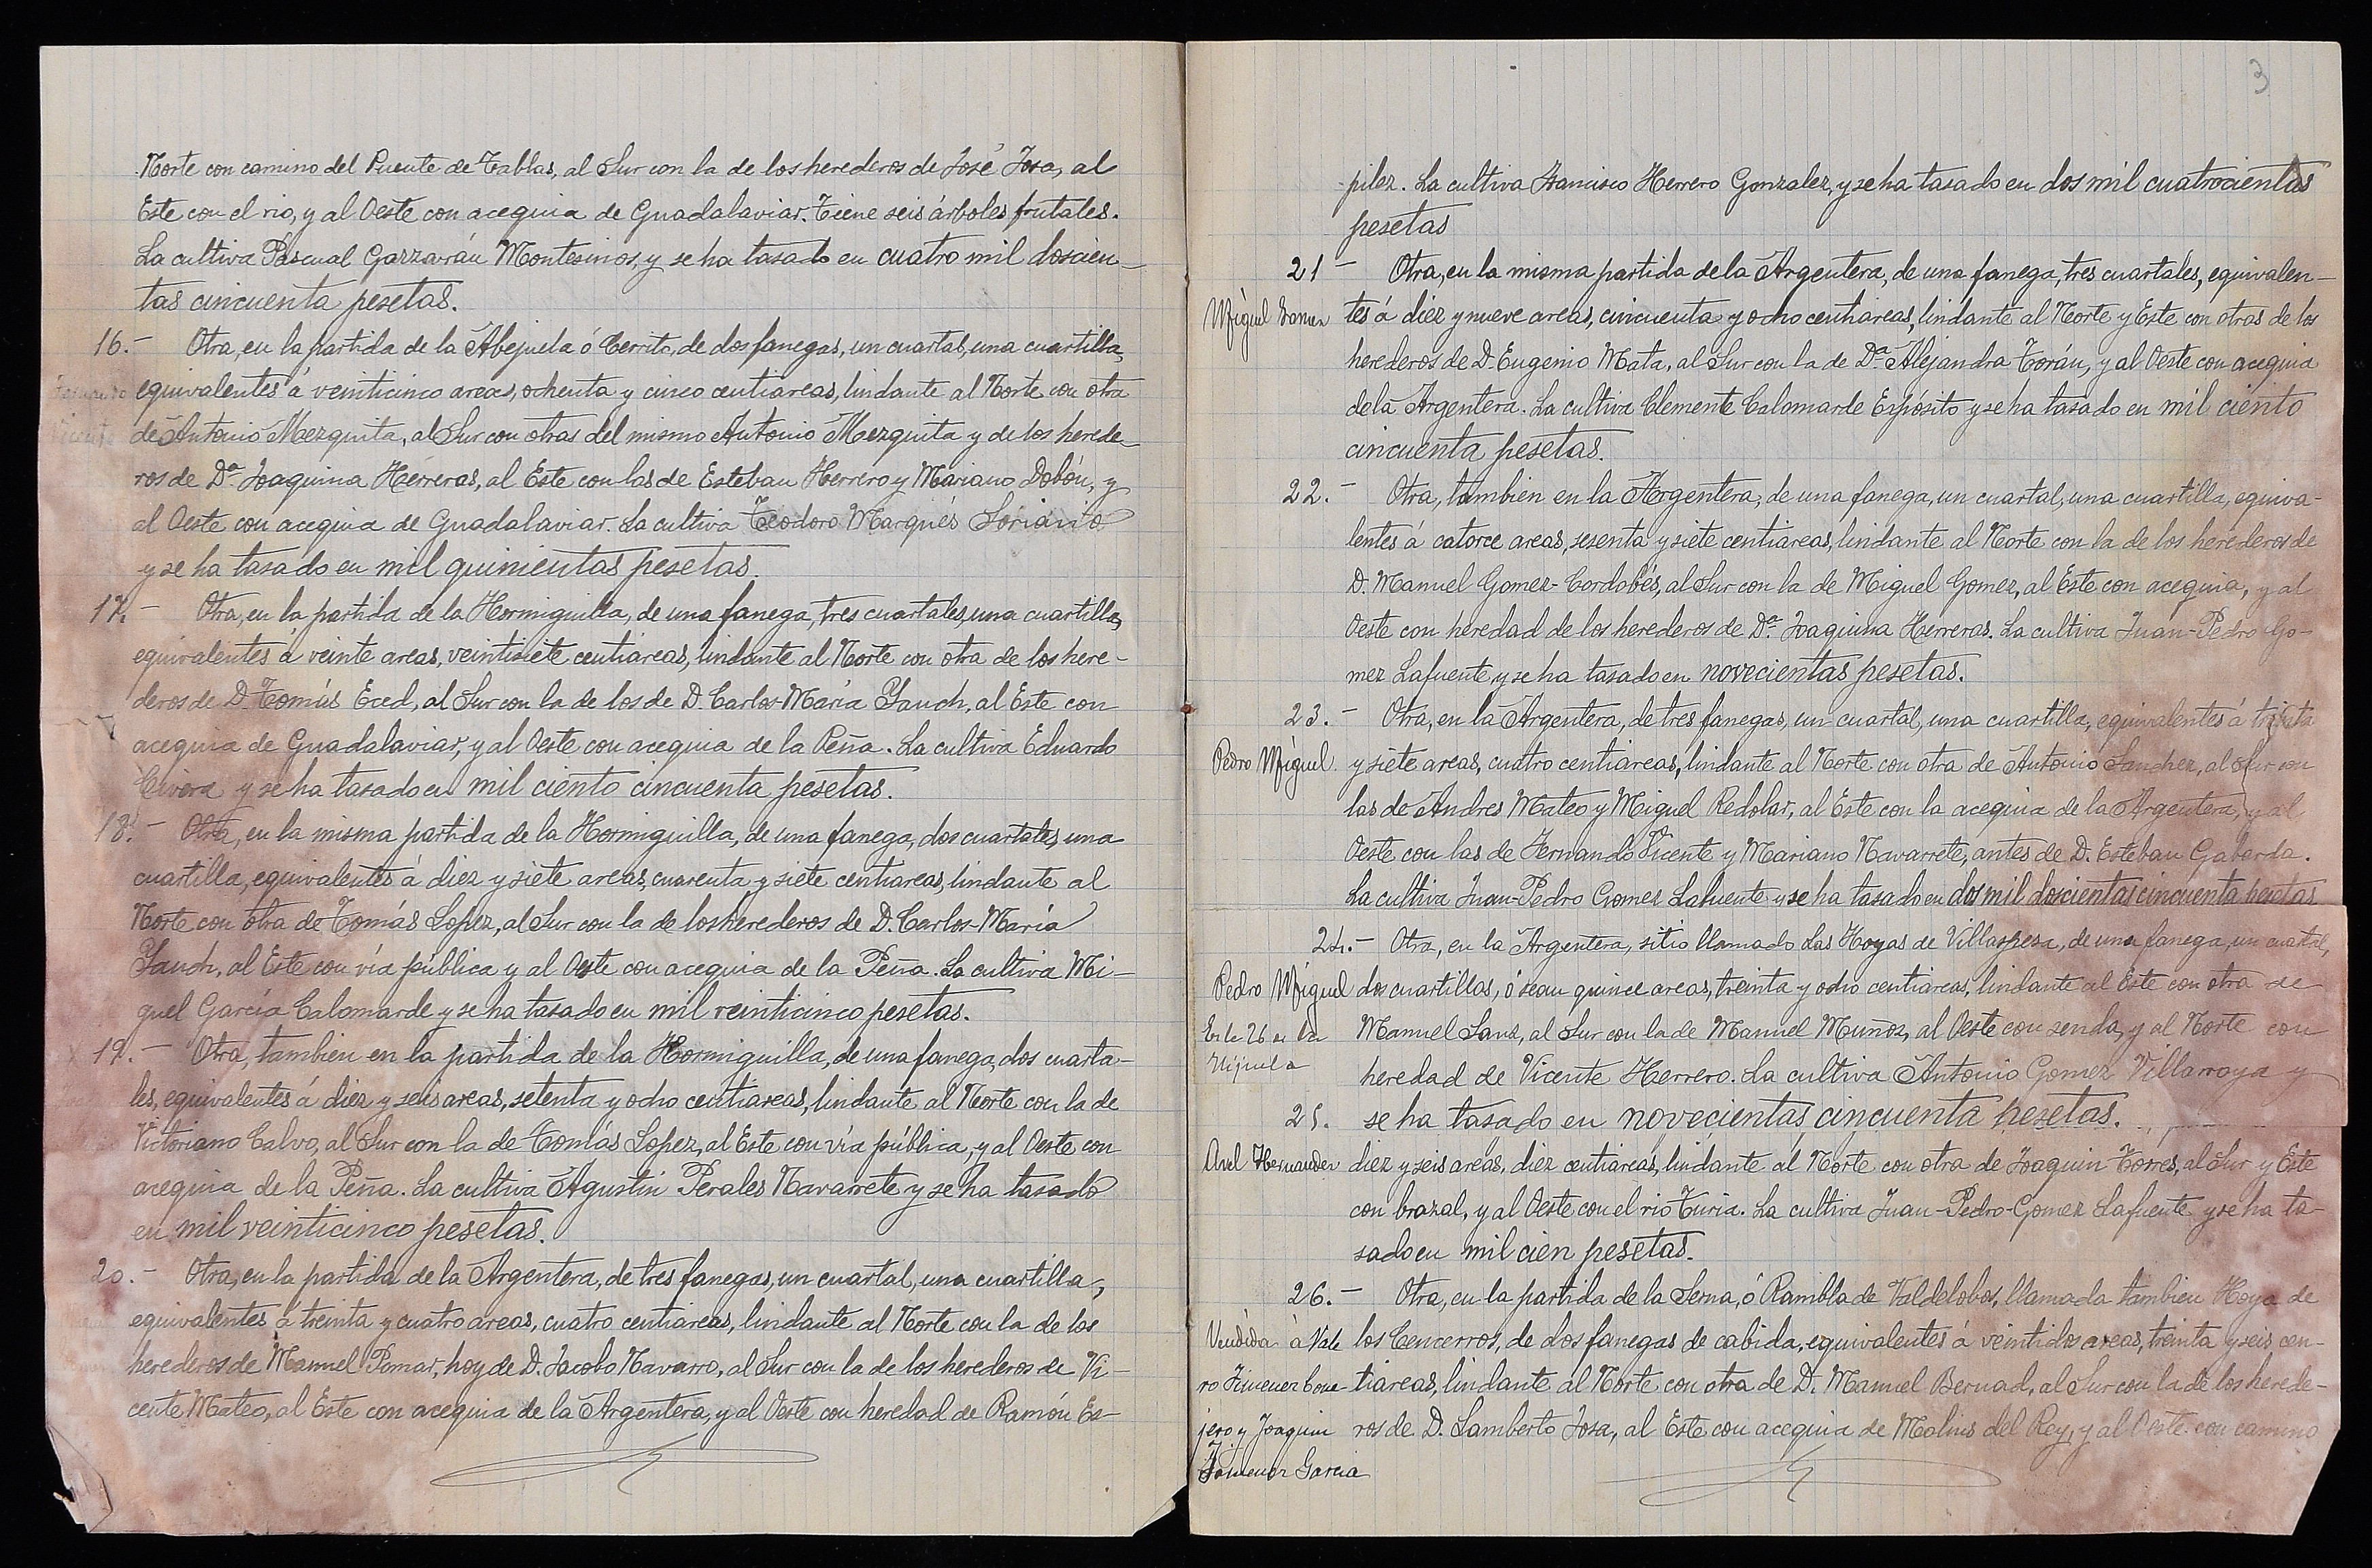 Norte con camino del Puente de Tablas, al Sur con la de los herederos de José Josa, al
Este con el rio, y al Oeste con acequia de Guadalaviar. Tiene seis árboles frutales.
La cultiva Pascual Garzarán Montesinos, y se ha tasado en cuatro mil doscien-
tas cincuenta pesetas.
16.- Otra, en la partida de la Abejuela ó Cerrito, de dos fanegas, un cuartal, una cuartilla,
equivalentes á veinticinco areas, ochenta y cinco centiareas, lindante al Norte con otra
Vicente de Antonio Mezquita, al Sur con otras del mismo Antonio Mezquita y de los herede-
ros de Dª Joaquina Herreras, al Este con las de Esteban Herrero y Mariano Dobón, y
al Oeste con acequia de Guadalaviar. La cultiva Teodoro Marqués Soriano
y se ha tasado en mil quinientas pesetas.
17.- Otra, en la partida de la Hormiguilla, de una fanega, tres cuartales, una cuartilla,
equivalentes á veinte areas, veintisiete centiareas, lindante al Norte con otra de los here-
deros de D. Tomás Eced, al Sur con la de los de D. Carlos-María Yauch, al Este con
acequia de Guadalaviar, y al Oeste con acequia de la Peña. La cultiva Eduardo
Civera y se ha tasado en mil ciento cincuenta pesetas.
18.- Otra, en la misma partida de la Hormiguilla, de una fanega, dos cuartales, una
cuartilla, equivalentes á diez y siete areas, cuarenta y siete centiareas, lindante al
Norte con otra de Tomás Lopez, al Sur con la de los herederos de D. Carlos-María
Yauch, al Este con vía pública y al Oeste con acequia de la Peña. La cultiva Mi-
guel García Calomarde y se ha tasado en mil veinticinco pesetas.
19.- Otra, tambien en la partida de la Hormiguilla, de una fanega, dos cuarta-
les, equivalentes á diez y seis areas, setenta y ocho centiareas, lindante al Norte con la de
Victoriano Calvo, al Sur con la de Tomás Lopez, al Este con vía pública, y al Oeste con
acequia de la Peña. La cultiva Agustín Perales Navarrete y se ha tasado
en mil veinticinco pesetas.
20.- Otra, en la partida de la Argentera, de tres fanegas, un cuartal, una cuartilla,
equivalentes á treinta y cuatro areas, cuatro centiareas, lindante al Norte con la de los
herederos de Manuel Pomar, hoy de D. Jacobo Navarro, al Sur con la de los herederos de Vi-
cente Mateo, al Este con acequia de la Argentera, y al Oeste con heredad de Ramón Es-
3
pilez. La cultiva Francisco Herrero Gonzalez, y se ha tasado en dos mil cuatrocientas
pesetas
21- Otra, en la misma partida de la Argentera, de una fanega, tres cuartales, equivalen-
Miguel tes á diez y nueve areas, cincuenta y ocho centiareas, lindante al Norte y Este con otras de los
herederos de D. Eugenio Mata, al Sur con la de Dª Alejandra Torán, y al Oeste con acequia
de la Argentera. La cultiva Clemente Calomarde Expósito y se ha tasado en mil ciento
cincuenta pesetas.
22.- Otra, tambien en la Argentera, de una fanega, un cuartal, una cuartilla, equiva-
lentes á catorce areas, sesenta y siete centiareas, lindante al Norte con la de los herederos de
D. Manuel Gomez-Cordobés, al Sur con la de Miguel Gomez, al Este con acequia, y al
Oeste con heredad de los herederos de Dª Joaquina Herreras. La cultiva Juan-Pedro Go-
mez Lafuente y se ha tasado en novecientas pesetas.
23.- Otra, en la Argentera, de tres fanegas, un cuartal, una cuartilla, equivalentes á treinta
Pedro Miguel y siete areas, cuatro centiareas, lindante al Norte con otra de Antonio Sanchez, al Sur con
las de Andres Mateo y Miguel Redolar, al Este con la acequia de la Argentera, y al
Oeste con las de Fernando Vicente y Mariano Navarrete, antes de D. Esteban Gabarda.
La cultiva Juan-Pedro Gomez Lafuente y se ha tasado en dos mil doscientas cincuenta pesetas
24.- Otra, en la Argentera, sitio llamado Las Hoyas de Villaspesa, de una fanega, un cuartal,
Pedro Miguel dos cuartillas, ó sean quince areas, treinta y ocho centiareas, lindante al Este con otra de
Es la 26 de la Manuel Sanz, al Sur con la de Manuel Muñoz, al Oeste con senda, y al Norte con
heredad de Vicente Herrero. La cultiva Antonio Gomez Villarroya y
25. se ha tasado en novecientas cincuenta pesetas.
Hernandez diez y seis areas, diez centiareas, lindante al Norte con otra de Joaquin Torres, al Sur y Este
con brazal, y al Oeste con el rio Turia. La cultiva Juan-Pedro-Gomez Lafuente y se ha ta-
sado en mil cien pesetas.
26.- Otra, en la partida de la Serna, ó Rambla de Valdelobos, llamada tambien Hoya de
Vendida á Vale los Cencerros, de dos fanegas de cabida, equivalentes á veintidos areas, treinta y seis cen-
ro Ximenez Cone tiareas, lindante al Norte con otra de D. Manuel Bernad, al Sur con la de los herede-
jero y Joaquin ros de D. Lamberto Josa, al Este con acequia de Molins del Rey, y al Oeste con camino
Ximenez Garcia